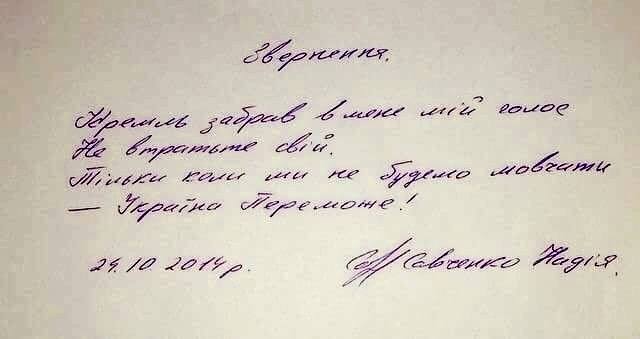 Звернення.
Кремль забрав в мене мій голос
Не втратьте свій.
Тільки коли ми не будемо мовчати
— Україна Переможе!
24.10.2014 р. Савченко Надія.